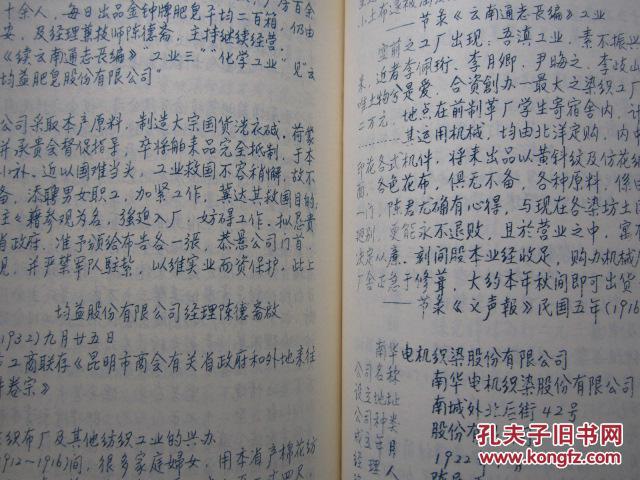 十余人，每日出品金钟牌肥皂平均二百箱，
安，及经理兼技师陈德斋，主持继续经营，
《续云南通志长编》"工业三""化学工业"见"云
均益肥皂股份有限公司"
公司采取本产原料，制造大宗国货洗衣碱，荷蒙
并承贵会督促指导，卒将舶来品完全抵制，于本
小补。近以国难当头，工业救国不容稍懈，故不
备，添聘男女职工，加紧工作，冀达其救国目的，
主《藉参观为名，强迫入厂，妨碍工作，拟恳贵
省政府，准予颁给布告各一张，恭悬公司门首，
见，并严禁军队驻紮，以维实业而资保护。此上
均益股份有限公司经理陈德斋啟
1932)九月廿五日
工商联存《昆明市商会有关省政府和外地来往
卷宗》
织布厂及其他纺织工业的兴办
912—1916)间，很多家庭妇女，用本省产棉花纺
——节录《云南通志长编》工业
空前之工厂出现：吾滇工业，素不振业
来，近者李佩珩、李月卿、尹晦之、李
唯土物兮是爱，合资创办一最大之染织工厂
二万元。地点在前制革厂学生寄宿舍内，计
其运用机械，均由北洋定购，内中
印花各式机件，将来出品以黄斜纹及仿花
面，各色花布，俱无不备，各种原料，係由
一门，陈君尤确有心得，与现在各染坊土
题别，更能永不退败，且於营业之中，富
决定从廉，刻间股本业经收足，购办机械
厂舍正急于修葺，大约本年秋间即可出货
——节录《义声报》民国五年(1916
南华电机织染股份有限公司
公司名称 南华电机织染股份有限公司
设立地址 南城外后街42号
公司种类 股份有
成立年月 1922年
经理人
孔夫子旧书网